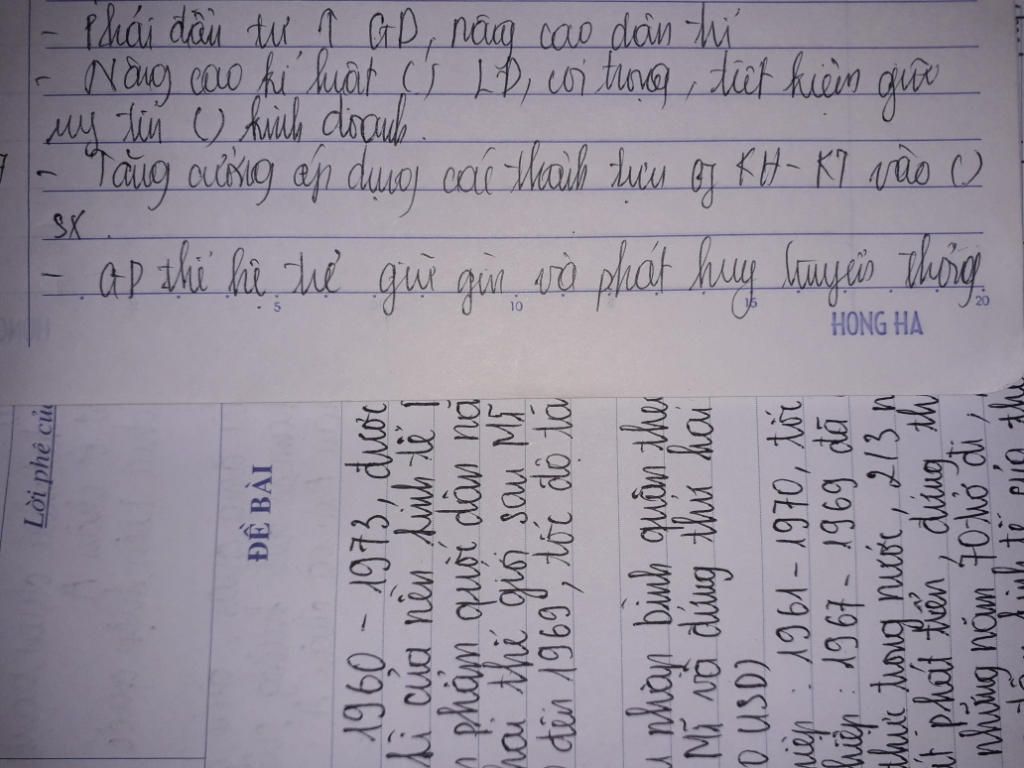 - Phải đầu tư ↑ GD, nâng cao dân trí
- Nâng cao kỉ luật () LĐ, coi trọng, tiết kiệm giữ
uy tín () kinh doanh.
- Tăng cường áp dụng các thành tựu of KH-KT vào ()
sx.
- GD thế hệ trẻ giữ gìn và phát huy truyền thống
5 10 15 20
HONG HA
Lời phê của
ĐỀ BÀI
1960 - 1973, được
kì của nền kinh tế
phẩm quốc dân
hai thế giới sau Mĩ
đến 1969, tốc độ
nhập bình quân
Mĩ và đứng thứ hai
USD)
1961 - 1970, tới
1967 - 1969 đã
thực trong nước, 2/3
phát triển, đứng
những năm 70 trở đi,
kinh tế của